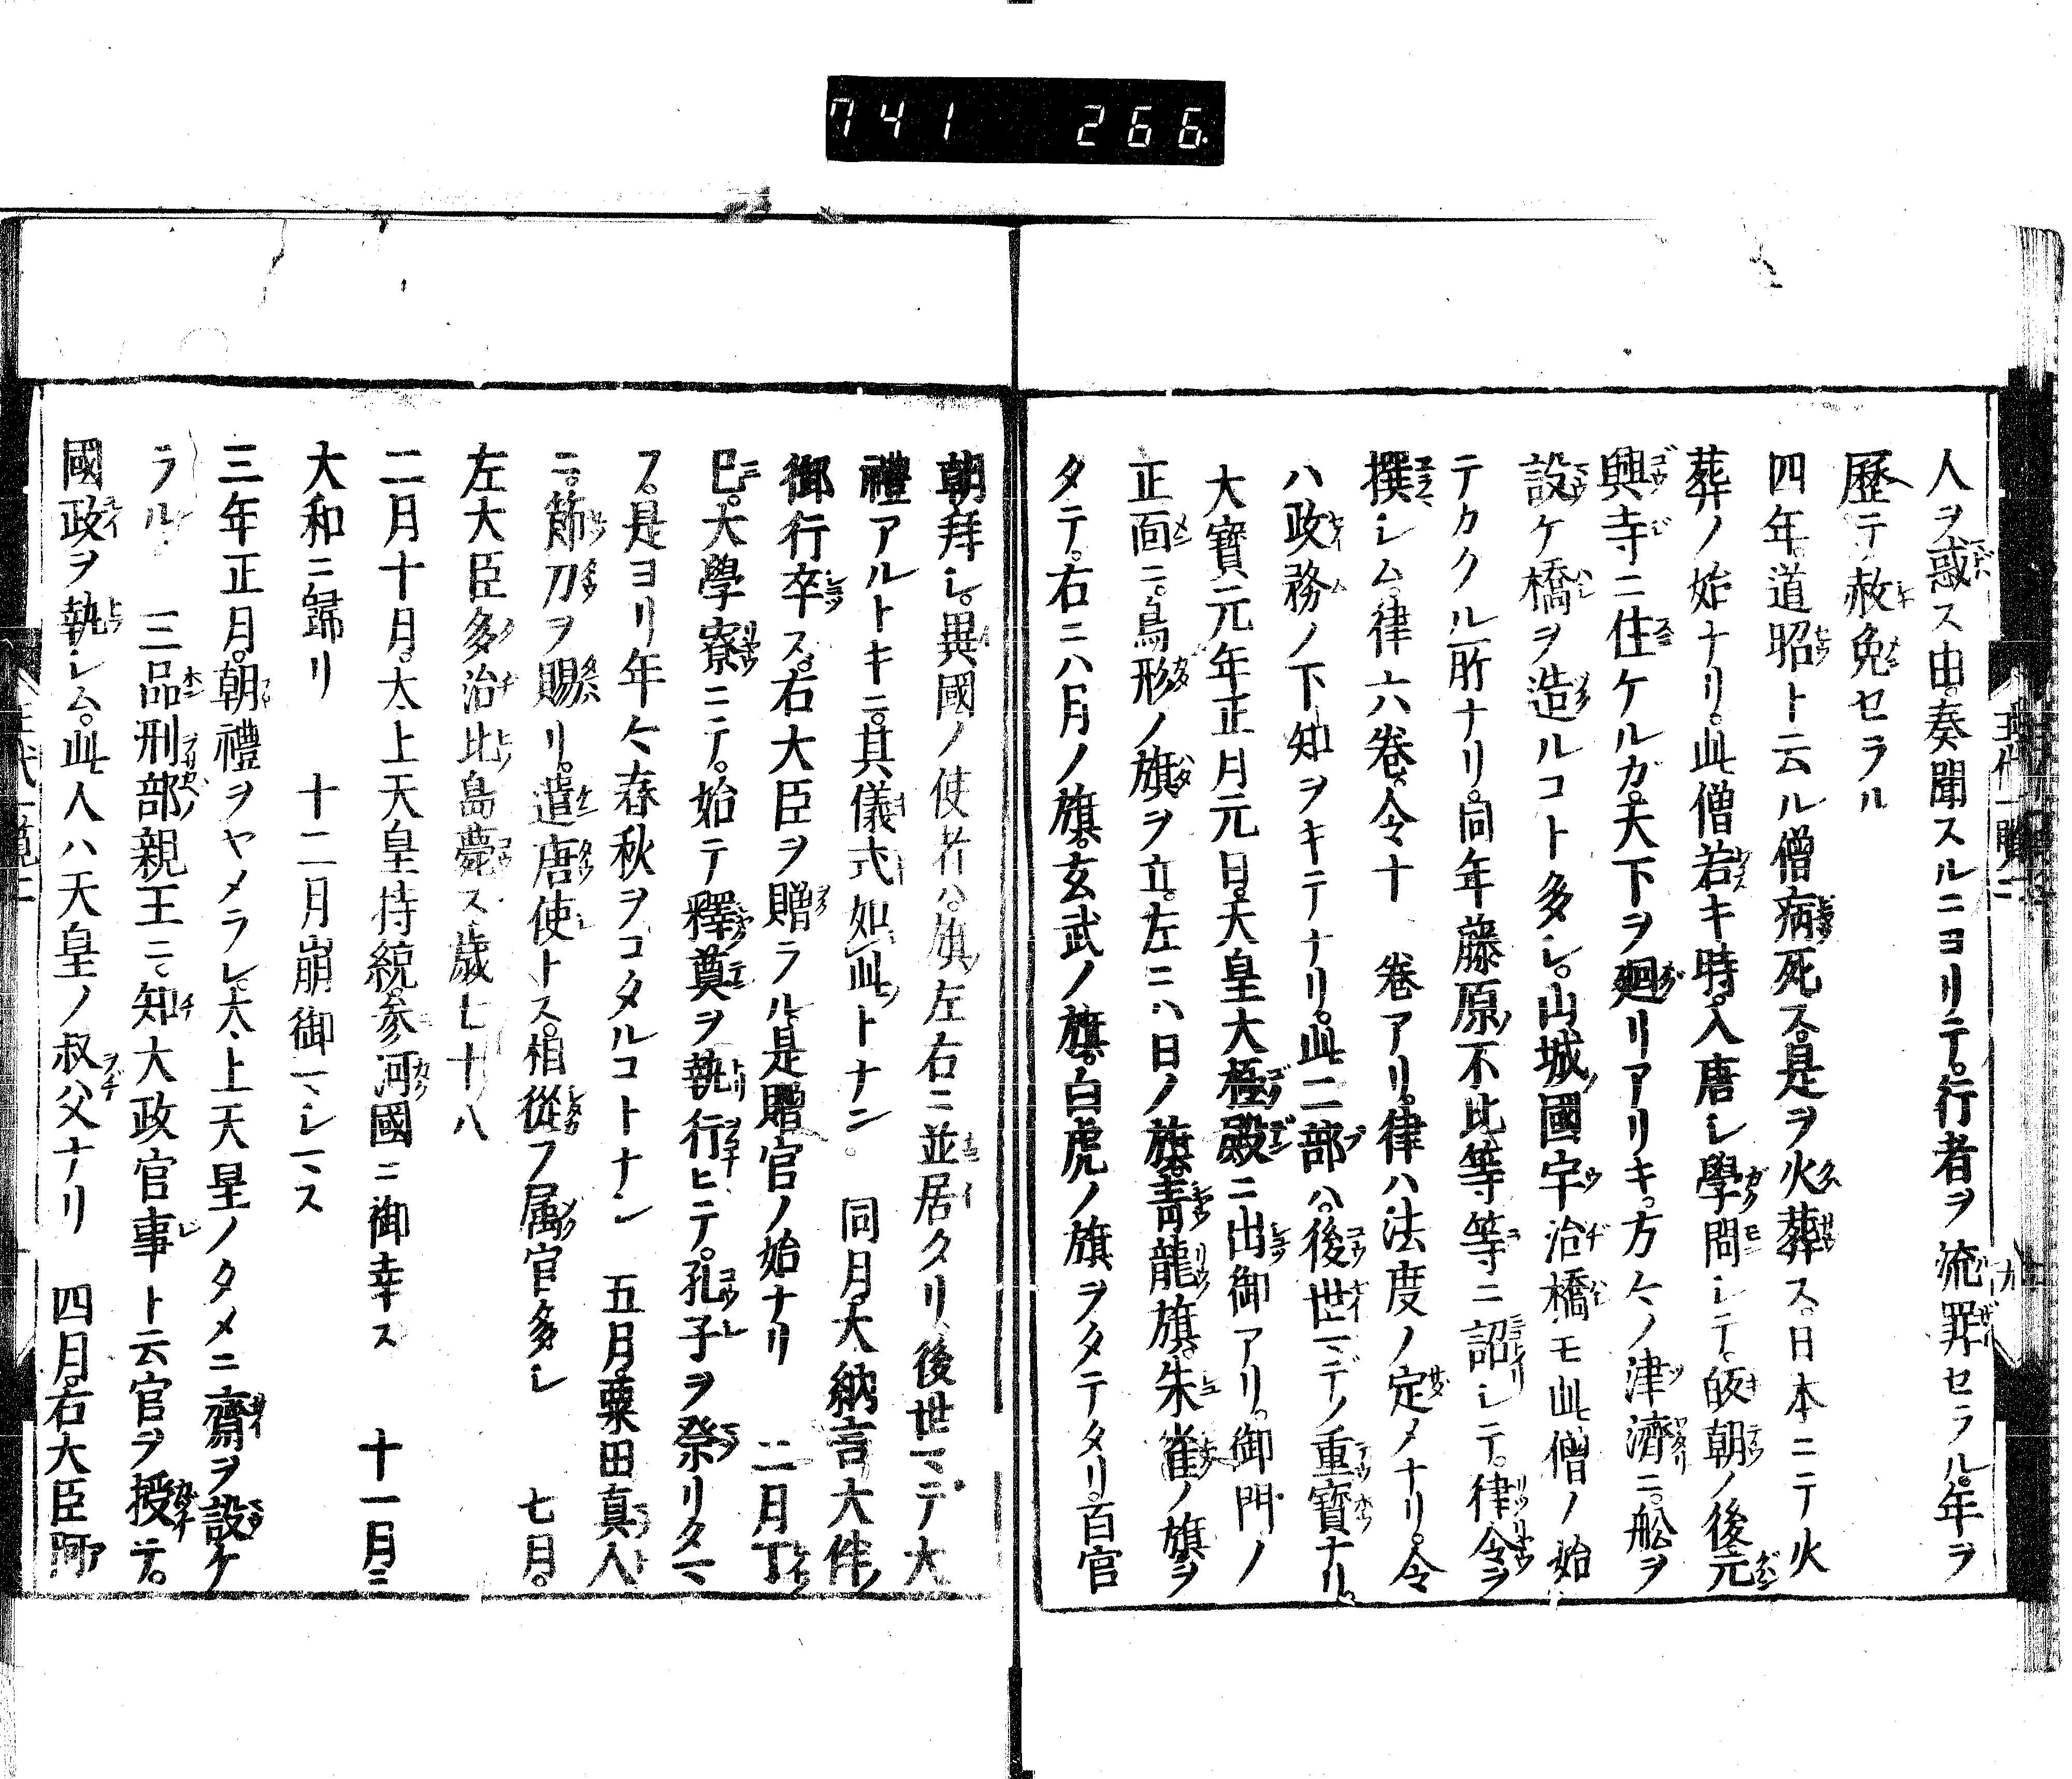 741 266
人ヲ惑ス由。奏聞スルニヨリテ。行者ヲ流罪セラル。年ヲ
歷テ赦免セラル
四年。道昭ト云ル僧病死ス。是ヲ火葬ス。日本ニテ火
葬ノ始ナリ。此僧若キ時。入唐シ學問シテ。皈朝ノ後元
興寺ニ住ケルガ。天下ヲ廻リアリキ。方々ノ津濟ニ。舩ヲ
設ケ橋ヲ造ルコト多シ。山城國宇治橋モ此僧ノ始
テカクル所ナリ。同年藤原不比等等ニ詔シテ。律令ヲ
撰シム。律六卷。令十一卷アリ。律ハ法度ノ定メナリ。令
ハ政務ノ下知ヲキテナリ。此二部ハ。後世マデノ重寶ナリ。
大寶元年正月元日。天皇大極殿ニ出御アリ。御門ノ
正面ニ。鳥形ノ旗ヲ立。左ニハ日ノ旗。靑龍旗。朱雀ノ旗ヲ
タテ。右ニハ月ノ旗。玄武ノ旗。白虎ノ旗ヲタテタリ。百官
朝拜シ。異國ノ使者ハ。旗ノ左右ニ並居タリ。後世マデ大
禮アルトキニ。其儀式如此トナン。 同月。大納言大伴
御行卒ス。右大臣ヲ贈ラル。是贈官ノ始ナリ 二月丁
巳。大學寮ニテ。始テ釋奠ヲ執行ヒテ。孔子ヲ祭リタマ
フ。是ヨリ年々春秋ヲコタルコトナシ 五月。粟田真人
ニ。節刀ヲ賜リ。遣唐使トス。相從フ属官多シ 七月。
左大臣多治比島薨ス歲七十八
二月十月。太上天皇持統。參河國ニ御幸ス 十一月ニ
大和ニ歸リ 十二月崩御マシマス
三年正月。朝禮ヲヤメラレ。太上天皇ノタメニ齋ヲ設ケ
ラル 三品刑部親王ニ。知大政官事ト云官ヲ授テ。
國政ヲ執シム。此人ハ天皇ノ叔父ナリ 四月。右大臣阿